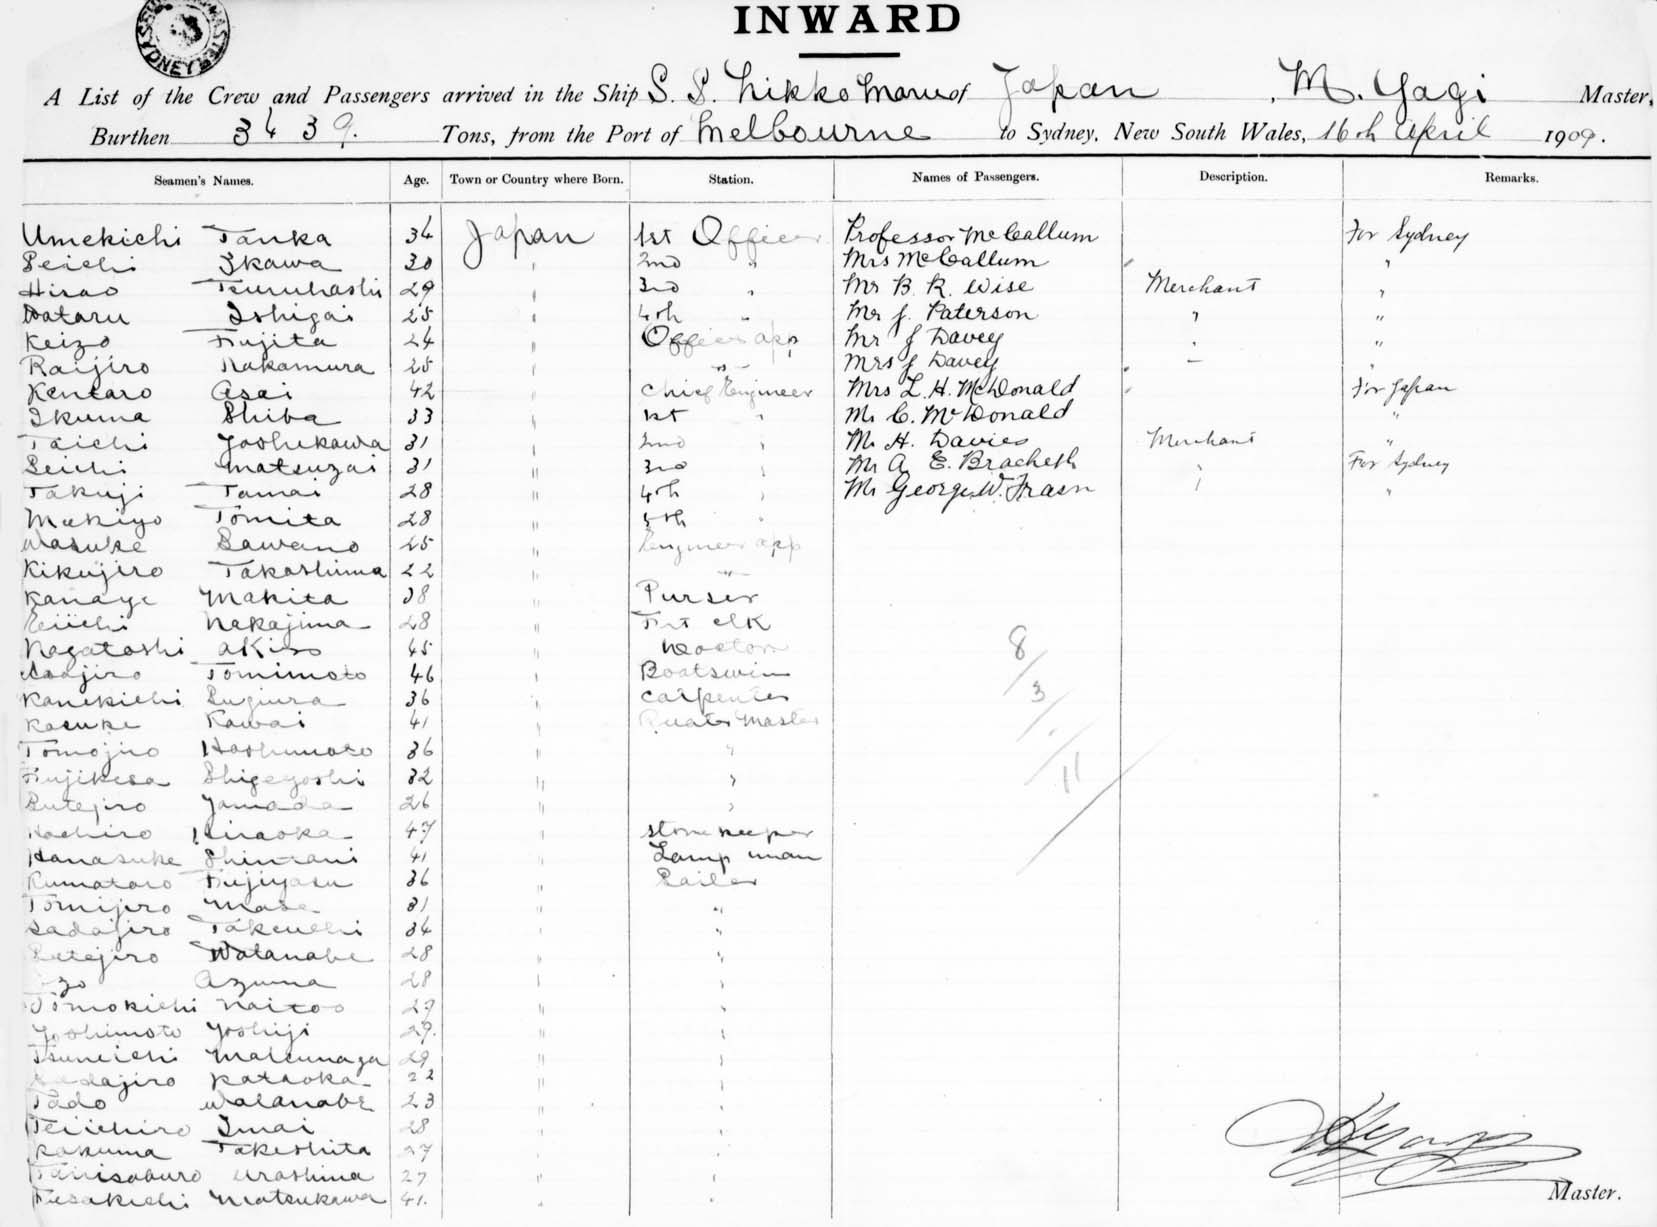 SYDNEY
INWARD
A List of the Crew and Passengers arrived in the Ship S. S. Nikko Maru of Japan , M. Yagi Master,
Burthen 3439. Tons, from the Port of Melbourne to Sydney, New South Wales, 16th April 1909.
Seamen's Names. Age. Town or Country where Born. Station. Names of Passengers. Description. Remarks.
Umekichi Tanka 34 Japan 1st Officer Professor McCallum For Sydney
Seichi Ikawa 30 " 2nd " Mrs McCallum "
Hisao Tsuruhashi 29 " 3rd " Mr B. R. Wise Merchant "
Wataru Ishigai 25 " 4th " Mr J. Paterson " "
Keizo Fujita 24 " Officer app Mr J Davey " "
Raijiro Nakamura 25 " " Mrs J Davey — "
Kentaro Asai 42 " Chief Engineer Mrs L. H. McDonald For Japan
Ikuma Shiba 33 " 1st " Mr C. McDonald "
Taichi Yoshikawa 31 " 2nd " Mr H. Davies Merchant "
Seichi Matsuzai 31 " 3rd " Mr A E. For Sydney
Takuji Tamai 28 " 4th " Mr George W. " "
Makiyo Tomita 28 " 5th "
Wasuke Sawano 25 " Engineer app
Kikujiro Takashima 22 " "
Kanaye Makita 38 " Purser
Eiichi Nakajima 28 " clk
Nagatoshi Akiso 45 " Doctor
Asajiro Tomimoto 46 " Boatswin
Kanekichi Sugiura 36 " Carpenter
Kasuke Kawai 41 " Quater Master
Tomojiro Hashimoto 36 " "
Fujikesa Shigeyoshi 32 " "
Sutejiro Yamada 26 " "
Hachiro Hiraoka 47 " Store keeper
Hanasuke Shintani 41 " Lamp man
Kumataro Fujiyasu 36 " Sailer
Tomijiro Mase 31 " "
Sadajiro Takeuchi 34 " "
Sutejiro Watanabe 28 " "
Azuma 28 " "
Tomokichi Naitoo 27 " "
Yoshimoto Yoshiji 29. " "
Tsuneichi Matsunaga 29 " "
Sadajiro Kataoka 22 " "
Tado Watanabe 23 " "
Teiichiro Imai 28 " "
Kakuma Takeshita 27 " "
Tanisaburo Urashima 27 " "
Fusakichi Matsukawa 41. " "
8
3
11
Master.